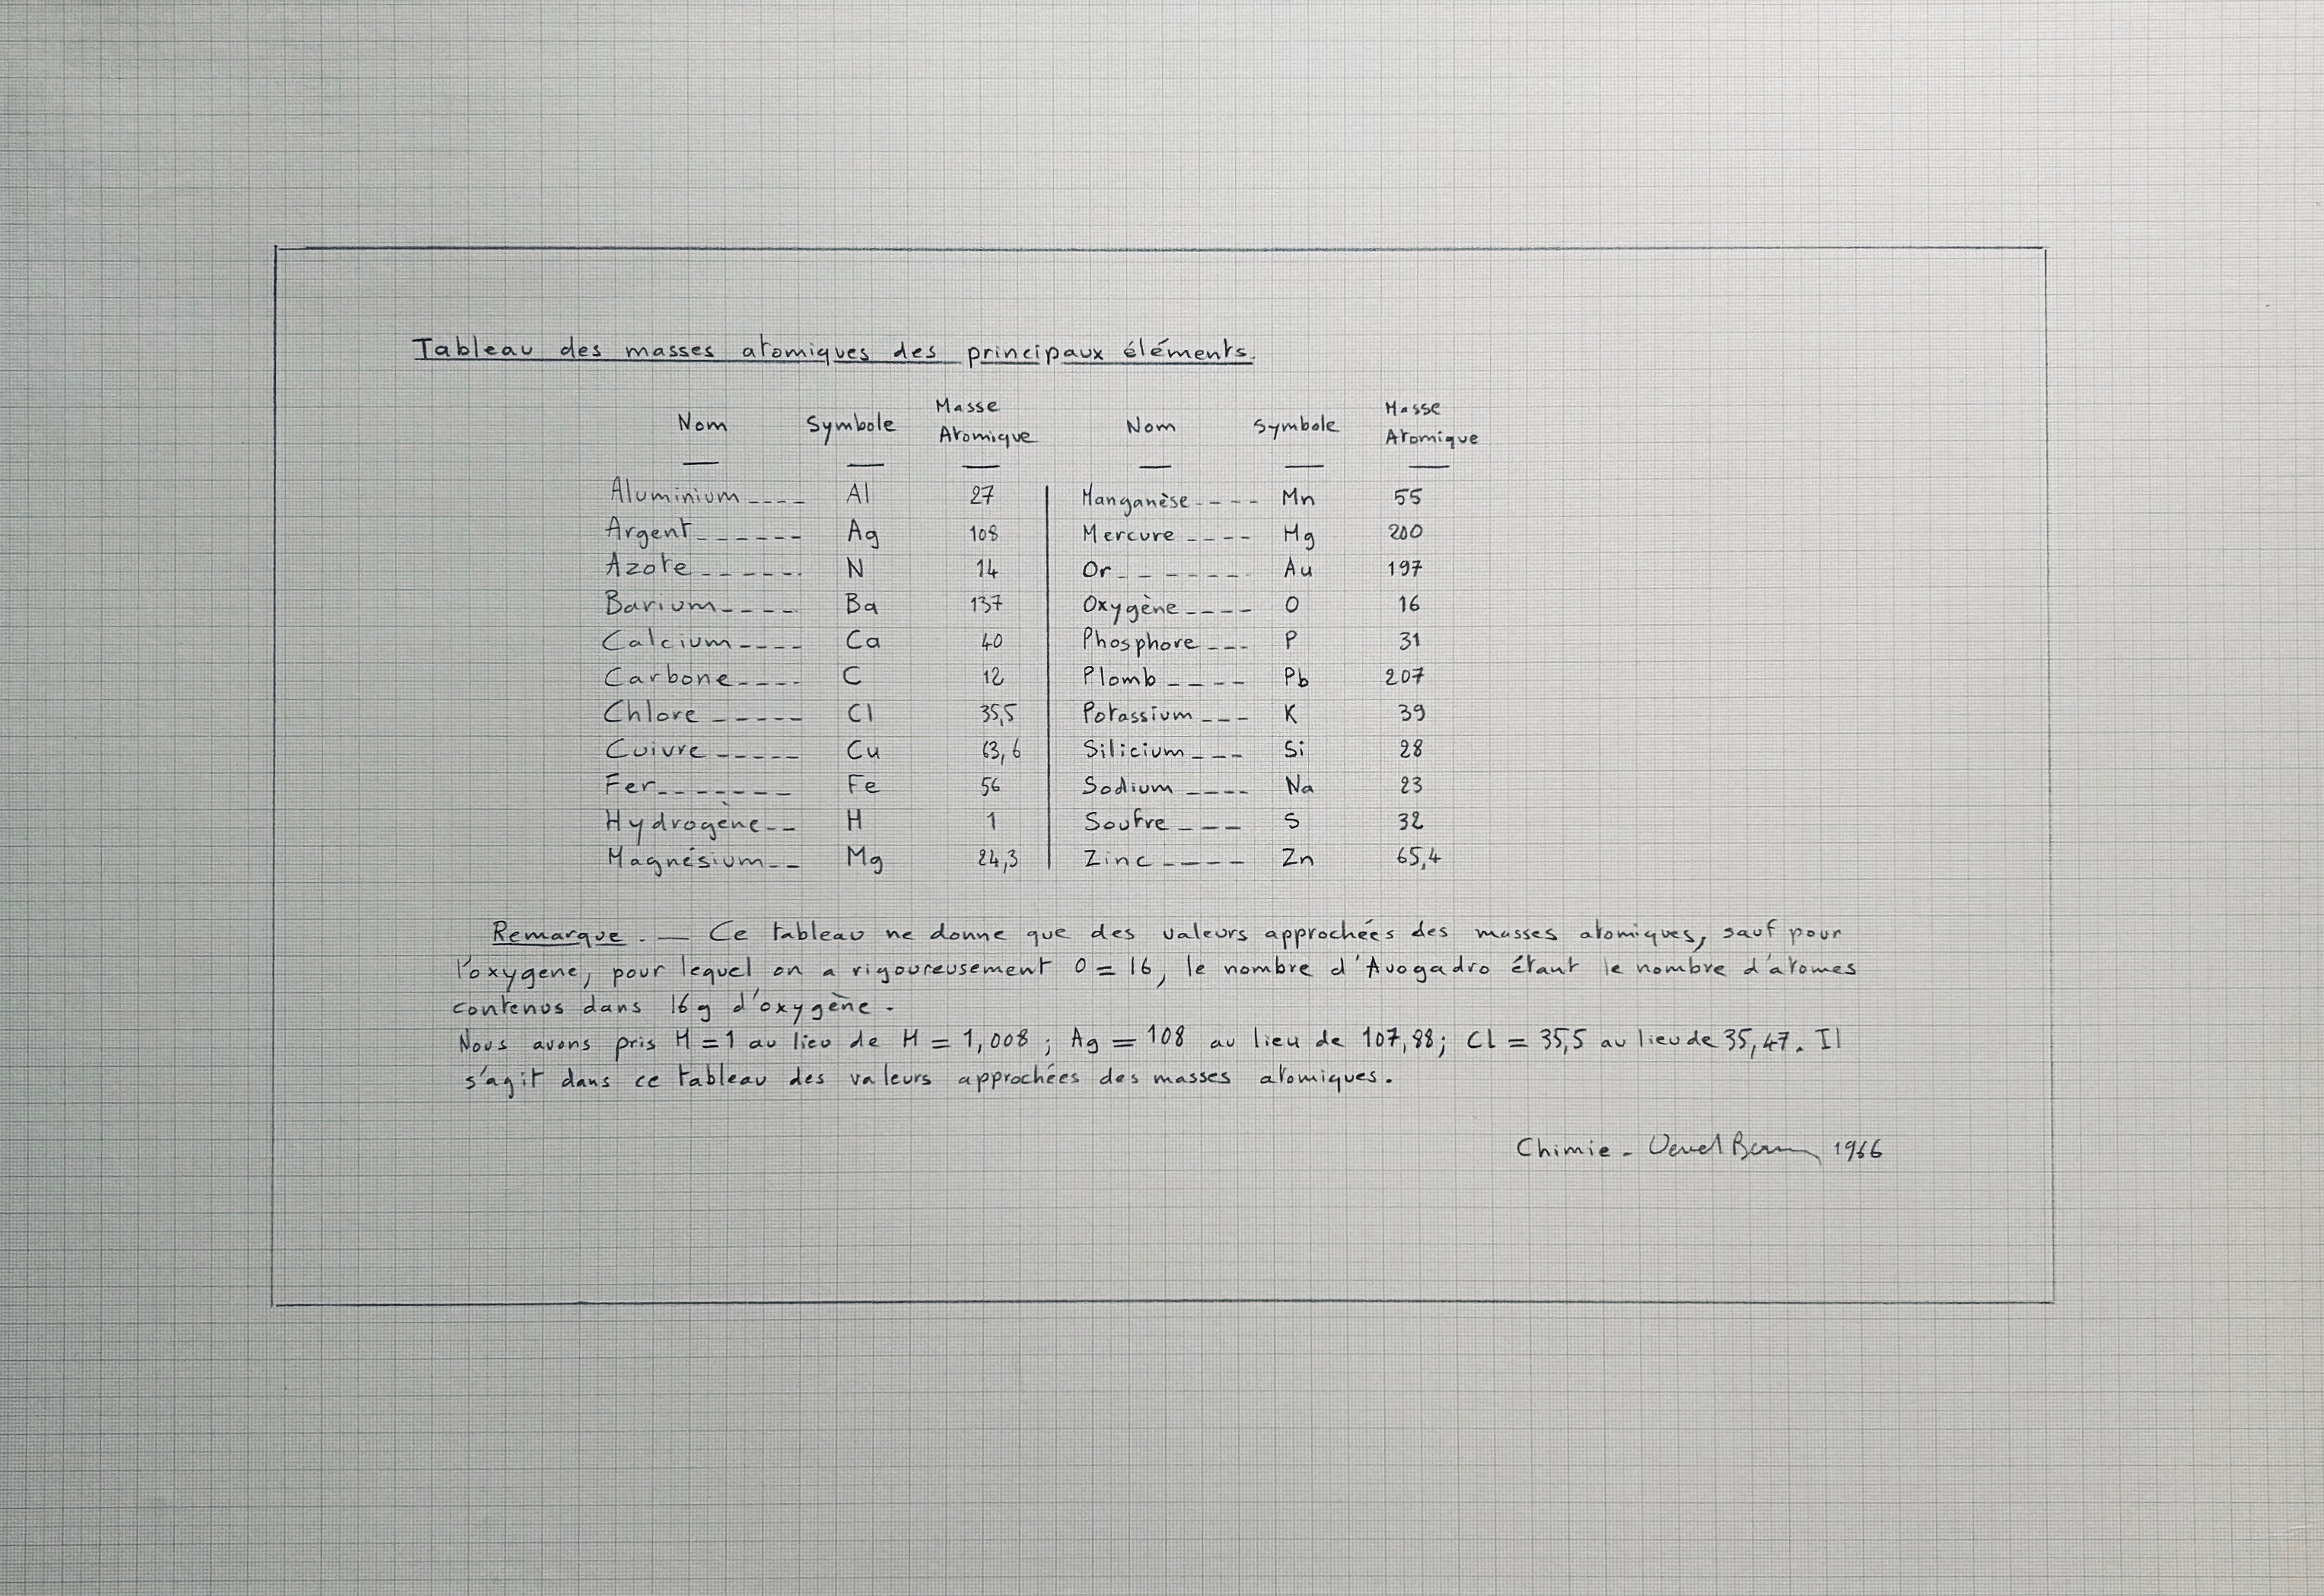 Tableau des masses atomiques des principaux éléments.
Nom Symbole Masse Atomique Nom Symbole Masse Atomique
Aluminium---- Al 27 Manganèse---- Mn 55
Argent------ Ag 108 Mercure ---- Hg 200
Azote------ N 14 Or------- Au 197
Barium---- Ba 137 Oxygène---- O 16
Calcium---- Ca 40 Phosphore --- P 31
Carbone---- C 12 Plomb ---- Pb 207
Chlore ----- Cl 35,5 Potassium --- K 39
Cuivre ----- Cu 63,6 Silicium --- Si 28
Fer------- Fe 56 Sodium ---- Na 23
Hydrogène-- H 1 Soufre --- S 32
Magnésium-- Mg 24,3 Zinc---- Zn 65,4
Remarque. — Ce tableau ne donne que des valeurs approchées des masses atomiques, sauf pour
l'oxygene, pour lequel on a rigoureusement O = 16, le nombre d'Avogadro étant le nombre d'atomes
contenus dans 16g d'oxygène.
Nous avons pris H = 1 au lieu de H = 1,008 ; Ag = 108 au lieu de 107,88; Cl = 35,5 au lieu de 35,47. Il
s'agit dans ce tableau des valeurs approchées des masses atomiques.
Chimie - 1966